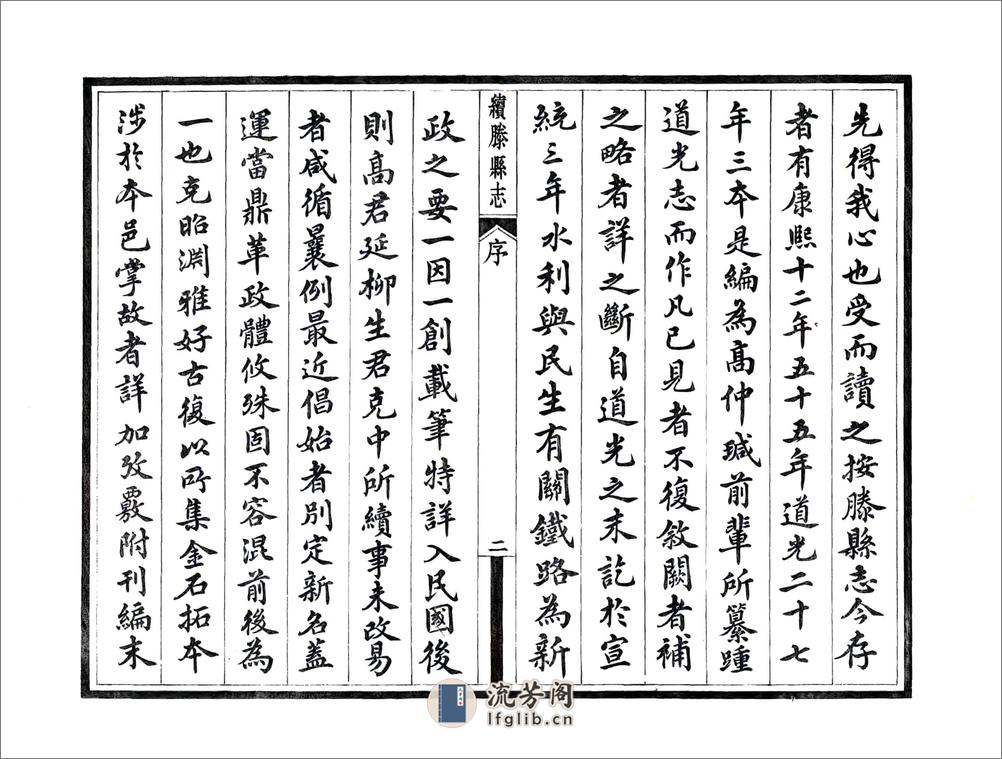 先得我心也受而讀之按滕縣志今存
者有康熙十二年五十五年道光二十七
年三本是編為高仲瑊前輩所纂踵
道光志而作凡已見者不復敘闕者補
之略者詳之斷自道光之末訖於宣
統三年水利與民生有關鐵路為新
續滕縣志
序
二
政之要一因一創載筆特詳入民國後
則高君延柳生君克中所續事未改易
者咸循曩例最近倡始者別定新名蓋
運當鼎革政體攸殊固不容混前後為
一也克昭淵雅好古復以所集金石拓本
涉於本邑掌故者詳加攷覈附刊編末
流芳阁
lfglib.cn